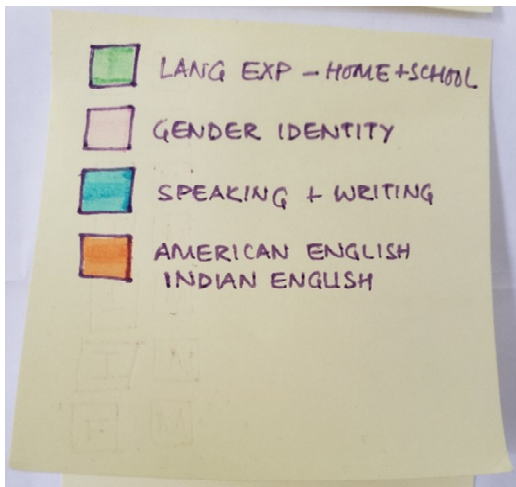 LANG EXP - HOME+SCHOOL
GENDER IDENTITY
SPEAKING + WRITING
AMERICAN ENGLISH
INDIAN ENGLISH